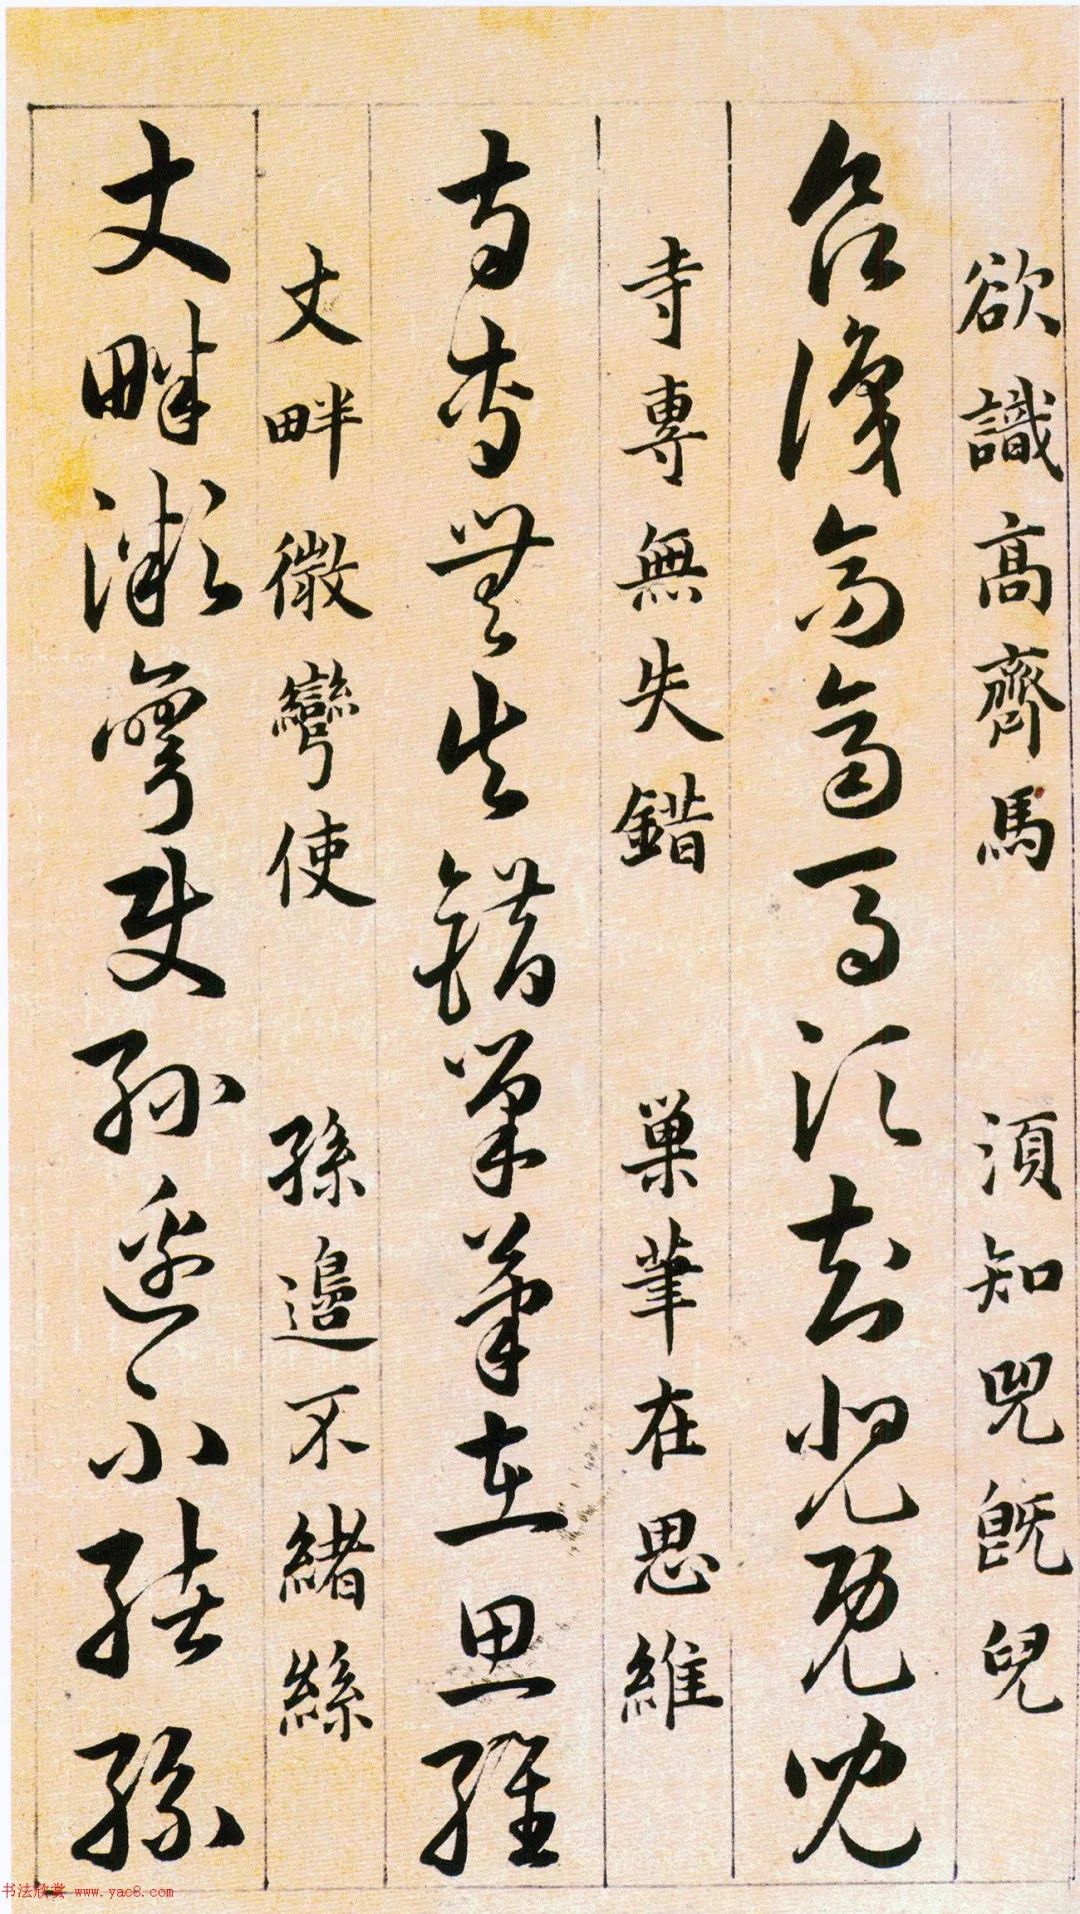 欲識高齊馬 須知兕既兒
欲識高齊馬須知兕既兒
寺專無失錯 巢筆在思維
寺專無失錯巢筆在思維
丈畔微彎使 孫邉不緒絲
丈畔微彎使孫邉不緒絲
书法欣赏 www.yac8.com